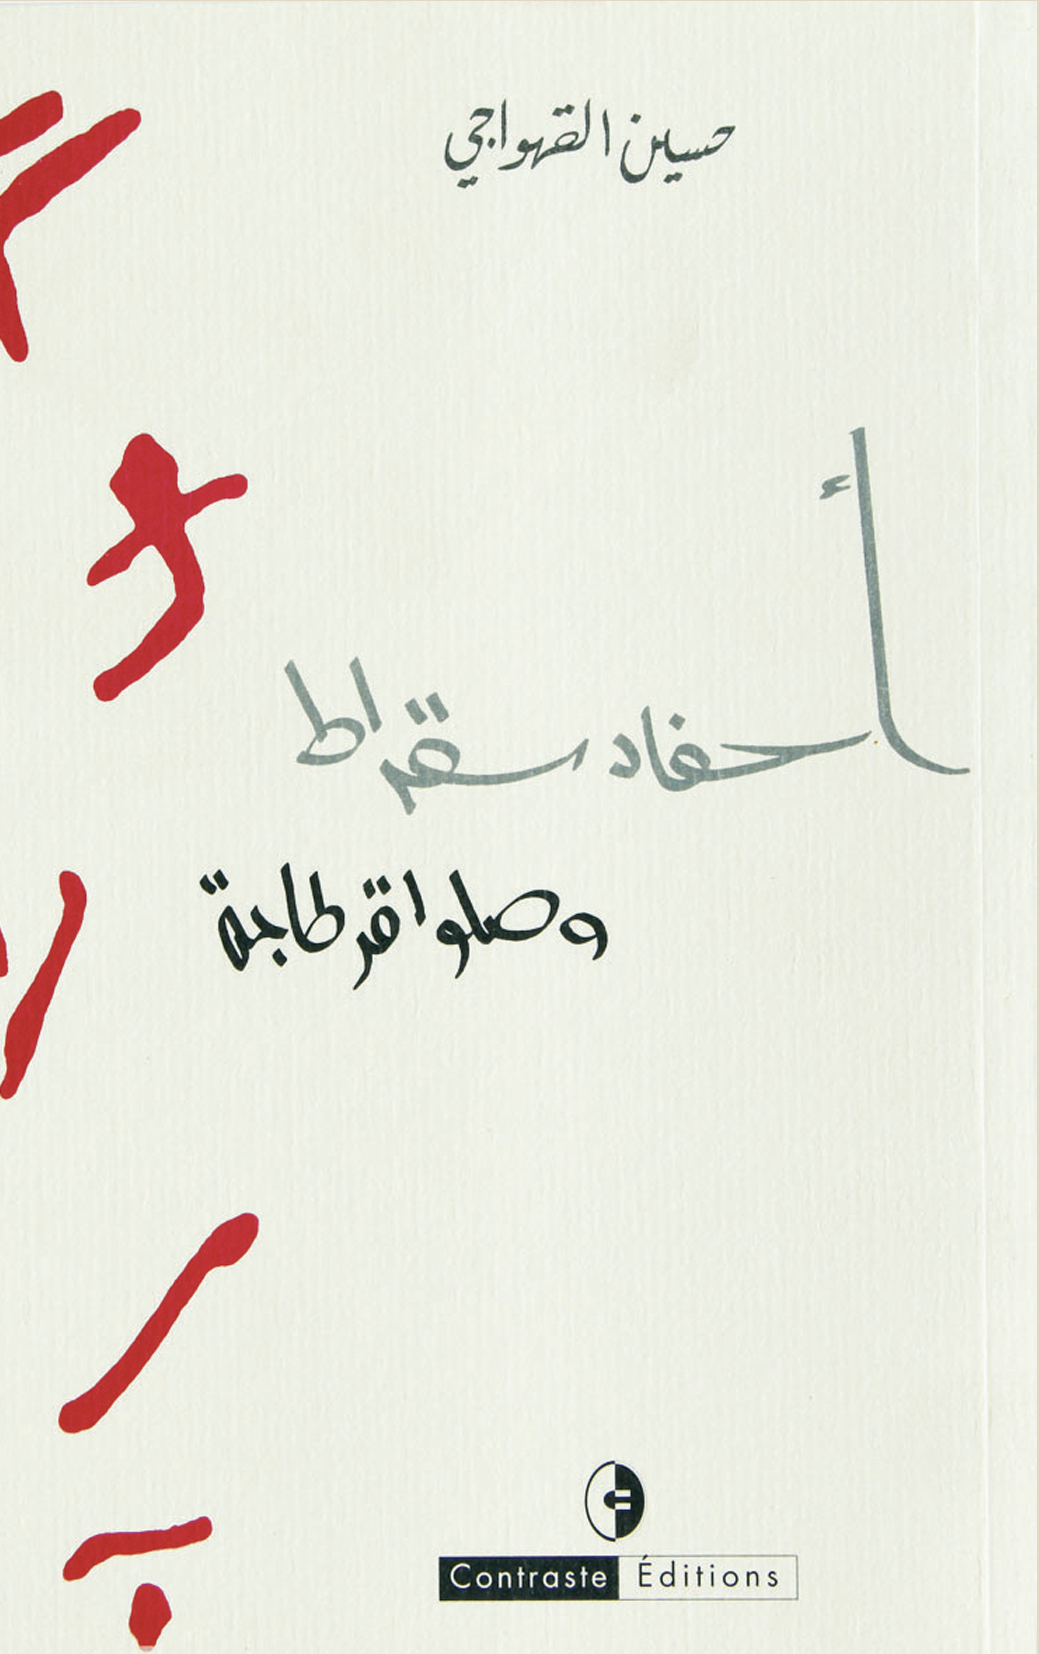 حسين القهواجي
أحفاد سقراط
وصلوا قرطاجة
Contraste Éditions